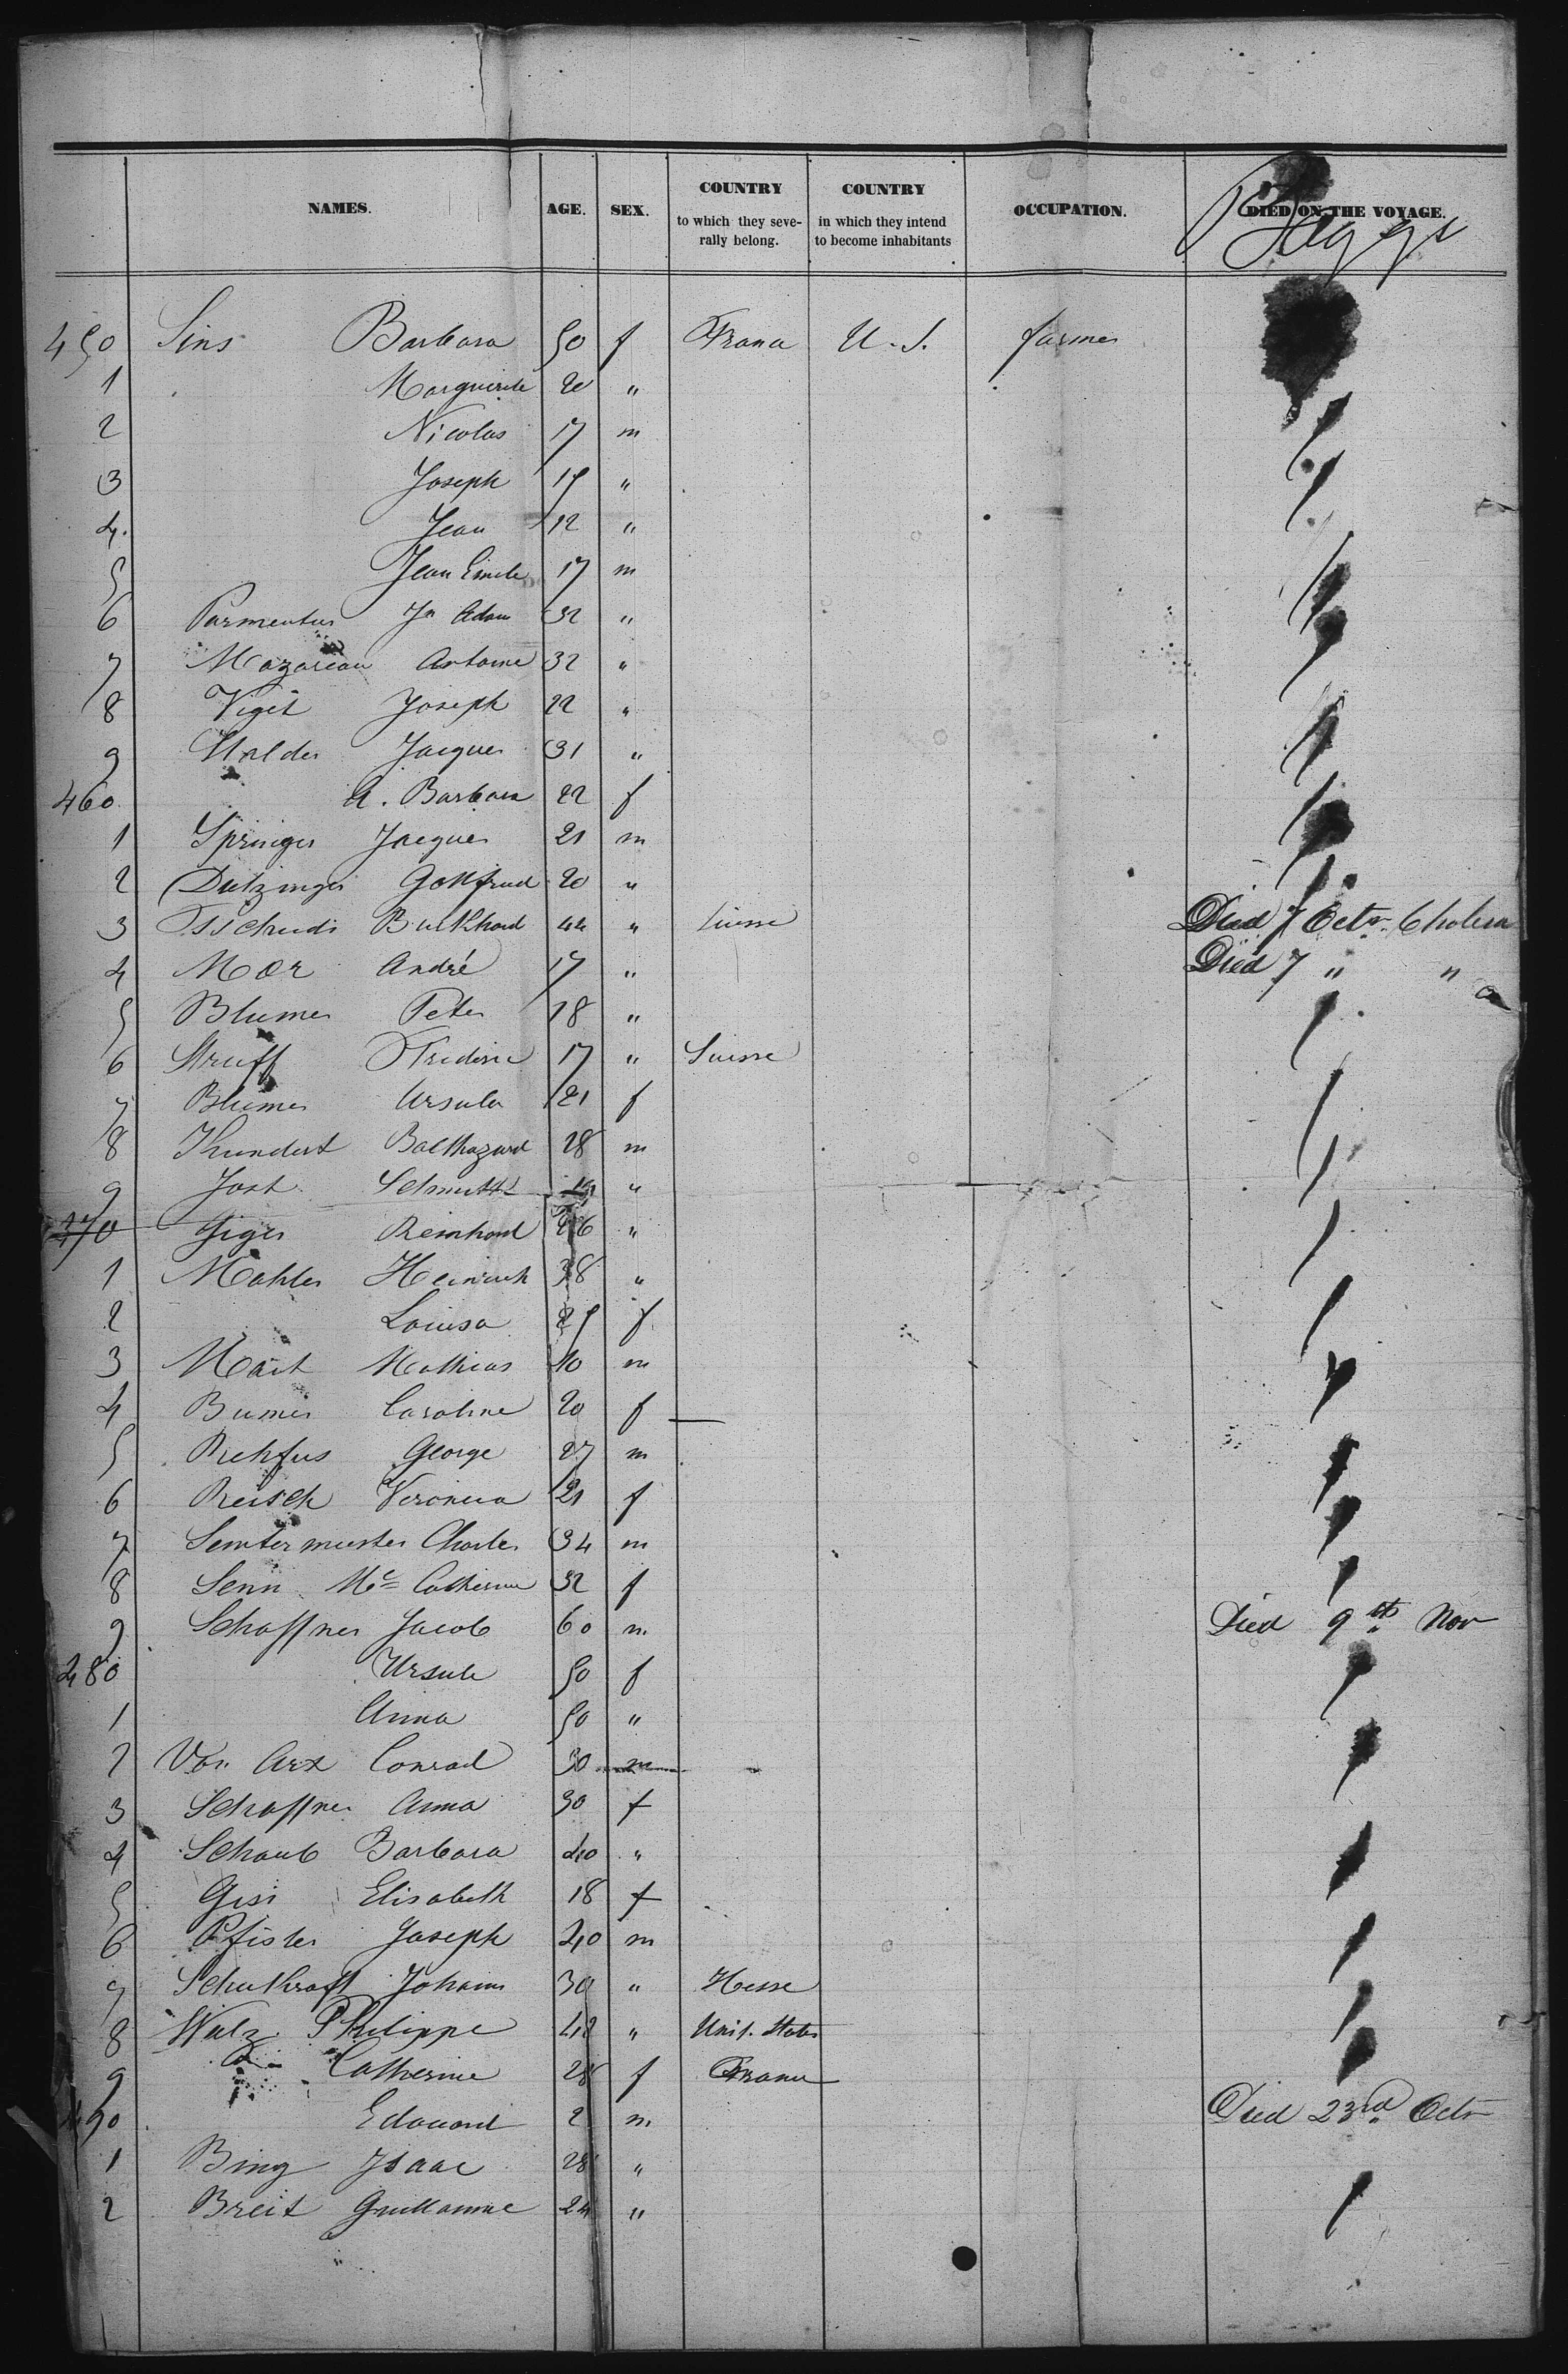 NAMES. AGE. SEX. COUNTRY to which they seve- rally belong. COUNTRY in which they intend to become inhabitants OCCUPATION. DIED ON THE VOYAGE.
450 Sins Barbara 50 f France U.S. farmer
1 Marguerite 20 "
2 Nicolas 17 m
3 Joseph 15 "
4. Jean 12 "
5 Jean Emile 17 m
6 Parmentier Jn Adam 32 "
7 Mazareau Antoine 32 "
8 Viget Joseph 22 "
9 Walder Jacques 31 "
460 A. Barbara 22 f
1 Springer Jacques 21 m
2 Dutzinger Gottfried 20 "
3 Tsschudi Burkhard 44 " Suisse Died 7 Octr. Cholera
4 Mær André 17 " Died 7 " "
5 Blumer Peter 18 "
6 Struff Frederic 17 " Suisse
7 Blumer Ursula 21 f
8 Kundert Balthazard 28 m
9 Jost Schmutts "
470 Giger Reinhard 46 "
1 Mahler Heinrich 38 "
2 Louisa f
3 Mathias 40 m
4 Bumer Caroline 20 f
5 Rehfus George 27 m
6 Reisch Veronica 21 f
7 Charles 34 m
8 Senn Me Catherine 32 f
9 Schaffner Jacob 60 m. Died 9th Nov
480 Ursule 50 f
1 Anna 50 "
2 Von Arx Conrad 30 m
3 Schaffner Anna 30 f
4 Schaub Barbara 40 "
5 Gisi Elisabeth 18 f
6 Pfister Joseph 40 m
7 Schuthraft Johann 30 " Hesse
8 Walz Philippe 42 " Unit. States
9 Catherine 28 f France
490 Edouard 2 m. Died 23rd Octr
1 Bing Isaac 28 "
2 Breit Guillaume 24 "